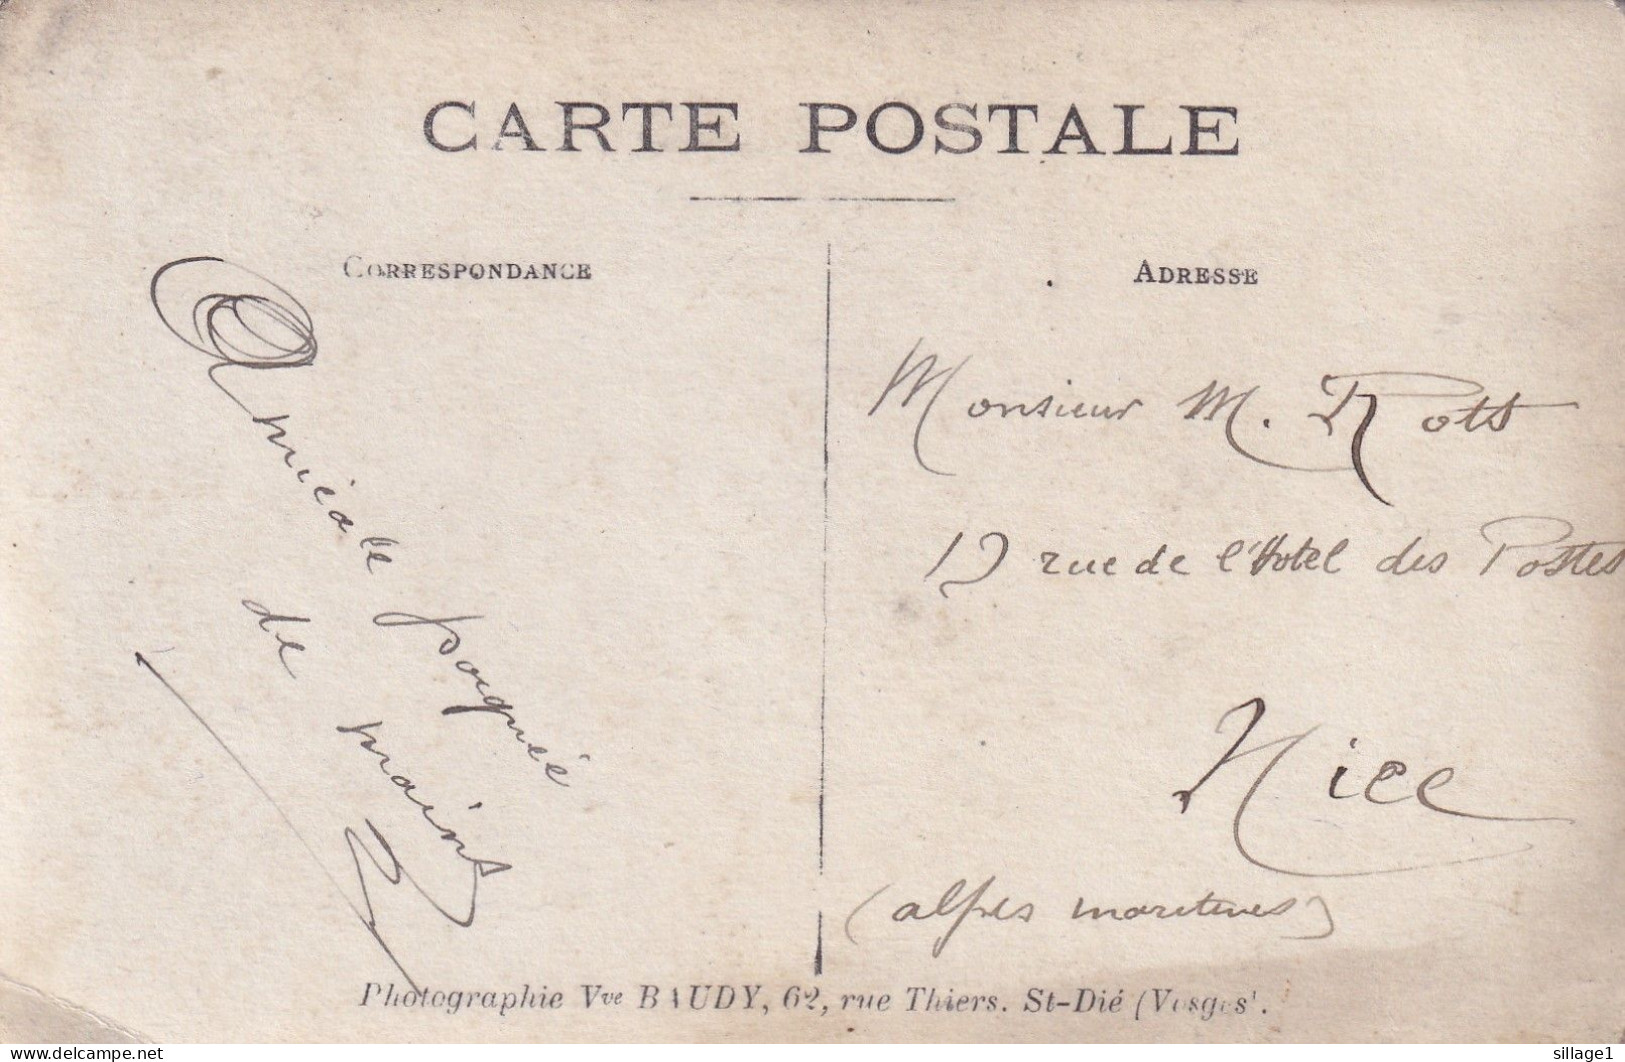 CARTE POSTALE
CORRESPONDANCE
ADRESSE
Amicale poignée
de mains
Monsieur M. Rott
17 rue de l'Hotel des Postes
Nice
(alpes maritimes)
Photographie Vve BAUDY, 62, rue Thiers. St-Dié (Vosges).
delcampe.net
sillage1